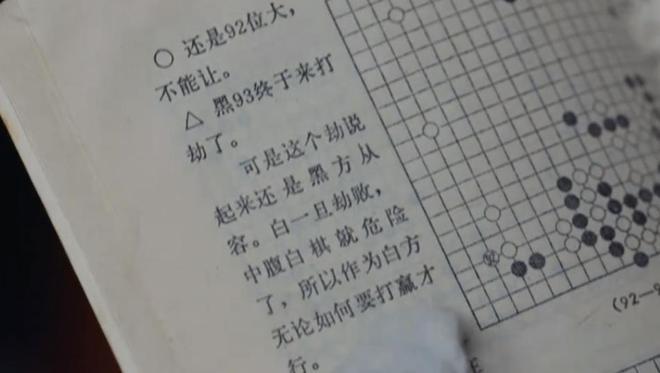 ○ 还是92位大，
不能让。
△ 黑93终于来打
劫了。
可是这个劫说
起来还是黑方从
容。白一旦劫败，
中腹白棋就危险
了，所以作为白方
无论如何要打赢才
行。
(92—9
E